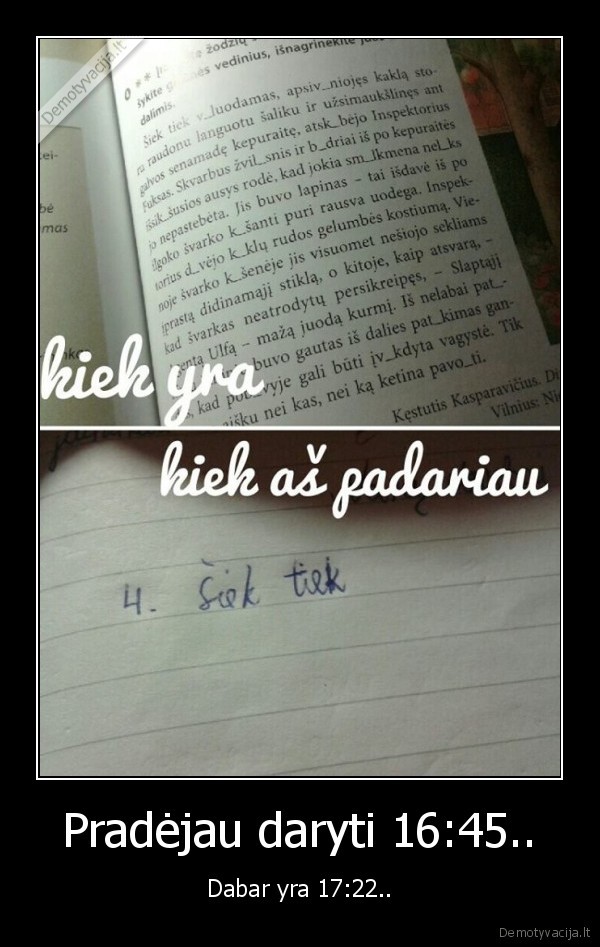 Demotyvacija.lt
žodžių
vedinius, išnagrinėkite
šykite
dalimis.
Šiek tiek v_luodamas, apsiv_niojęs kaklą sto-
ra raudonu languotu šaliku ir užsimaukšlinęs ant
galvos senamadę kepuraitę, atsk_bėjo Inspektorius
Fuksas. Skvarbus žvil_snis ir b_driai iš po kepuraitės
išsik_šusios ausys rodė, kad jokia sm_lkmena nel_ks
jo nepastebėta. Jis buvo lapinas – tai išdavė iš po
ilgoko švarko k_šanti puri rausva uodega. Inspek-
torius d_vėjo k_klų rudos gelumbės kostiumą. Vie-
noje švarko k_šenėje jis visuomet nešiojo sekliams
įprastą didinamąjį stiklą, o kitoje, kaip atsvarą, –
kad švarkas neatrodytų persikreipęs, – Slaptąjį
Ulfą – mažą juodą kurmį. Iš nelabai pat_-
buvo gautas iš dalies pat_kimas gan-
kad vyje gali būti įv_kdyta vagystė. Tik
aišku nei kas, nei ką ketina pavo_ti.
Kęstutis Kasparavičius. Di
Vilnius: Ni
ei-
bė
mas
kiek yra
kiek aš padariau
4. Šiek tiek
Pradėjau daryti 16:45..
Dabar yra 17:22..
Demotyvacija.lt